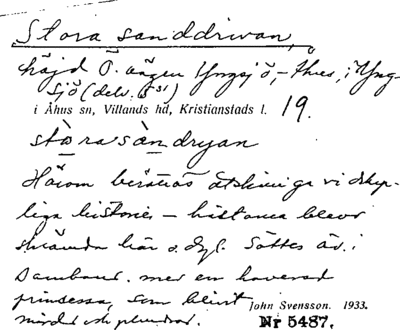 Stora sanddrivan,
höjd Ö. vägen Yngsjö,- hus, i Yng-
sjö (delv. 15 31)
i Åhus sn, Villands hd, Kristianstads l. 19.
stora sandryan
Härom berättas åtskilliga vidskep-
liga historier — hästarna blevo
skrämda här o. dyl. Sattes äv. i
samband med en havererad
prinsessa, som blivit
mördad och plundrad.
John Svensson. 1933.
Nr 5487.